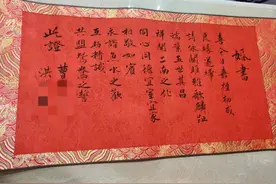 婚書
喜今日嘉禮初成
良緣遂締
詩詠關雎雅歌麟趾
瑞葉五世其昌
祥開二南之化
同心同德宜室宜家
相敬如賓
永諧魚水之歡
互助精誠
共盟鴛鴦之誓
此證
曹
洪